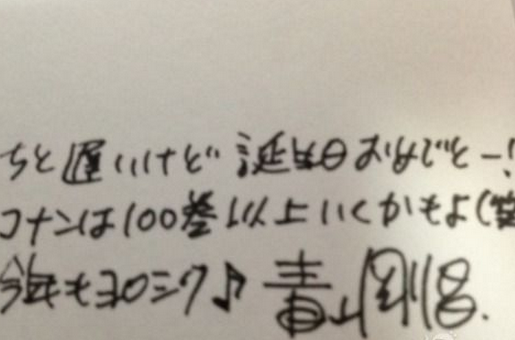 ちと遅いけど 誕生日おめでとー!
コナンは100巻以上いくかもよ(笑
今年もヨロシク♪ 青山剛昌.